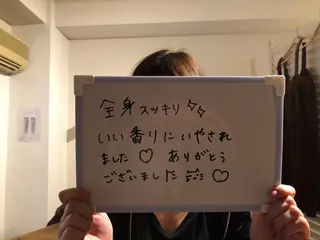 全身スッキリ✨
いい香りにいやされ
ました♡ ありがとう
ございました♡